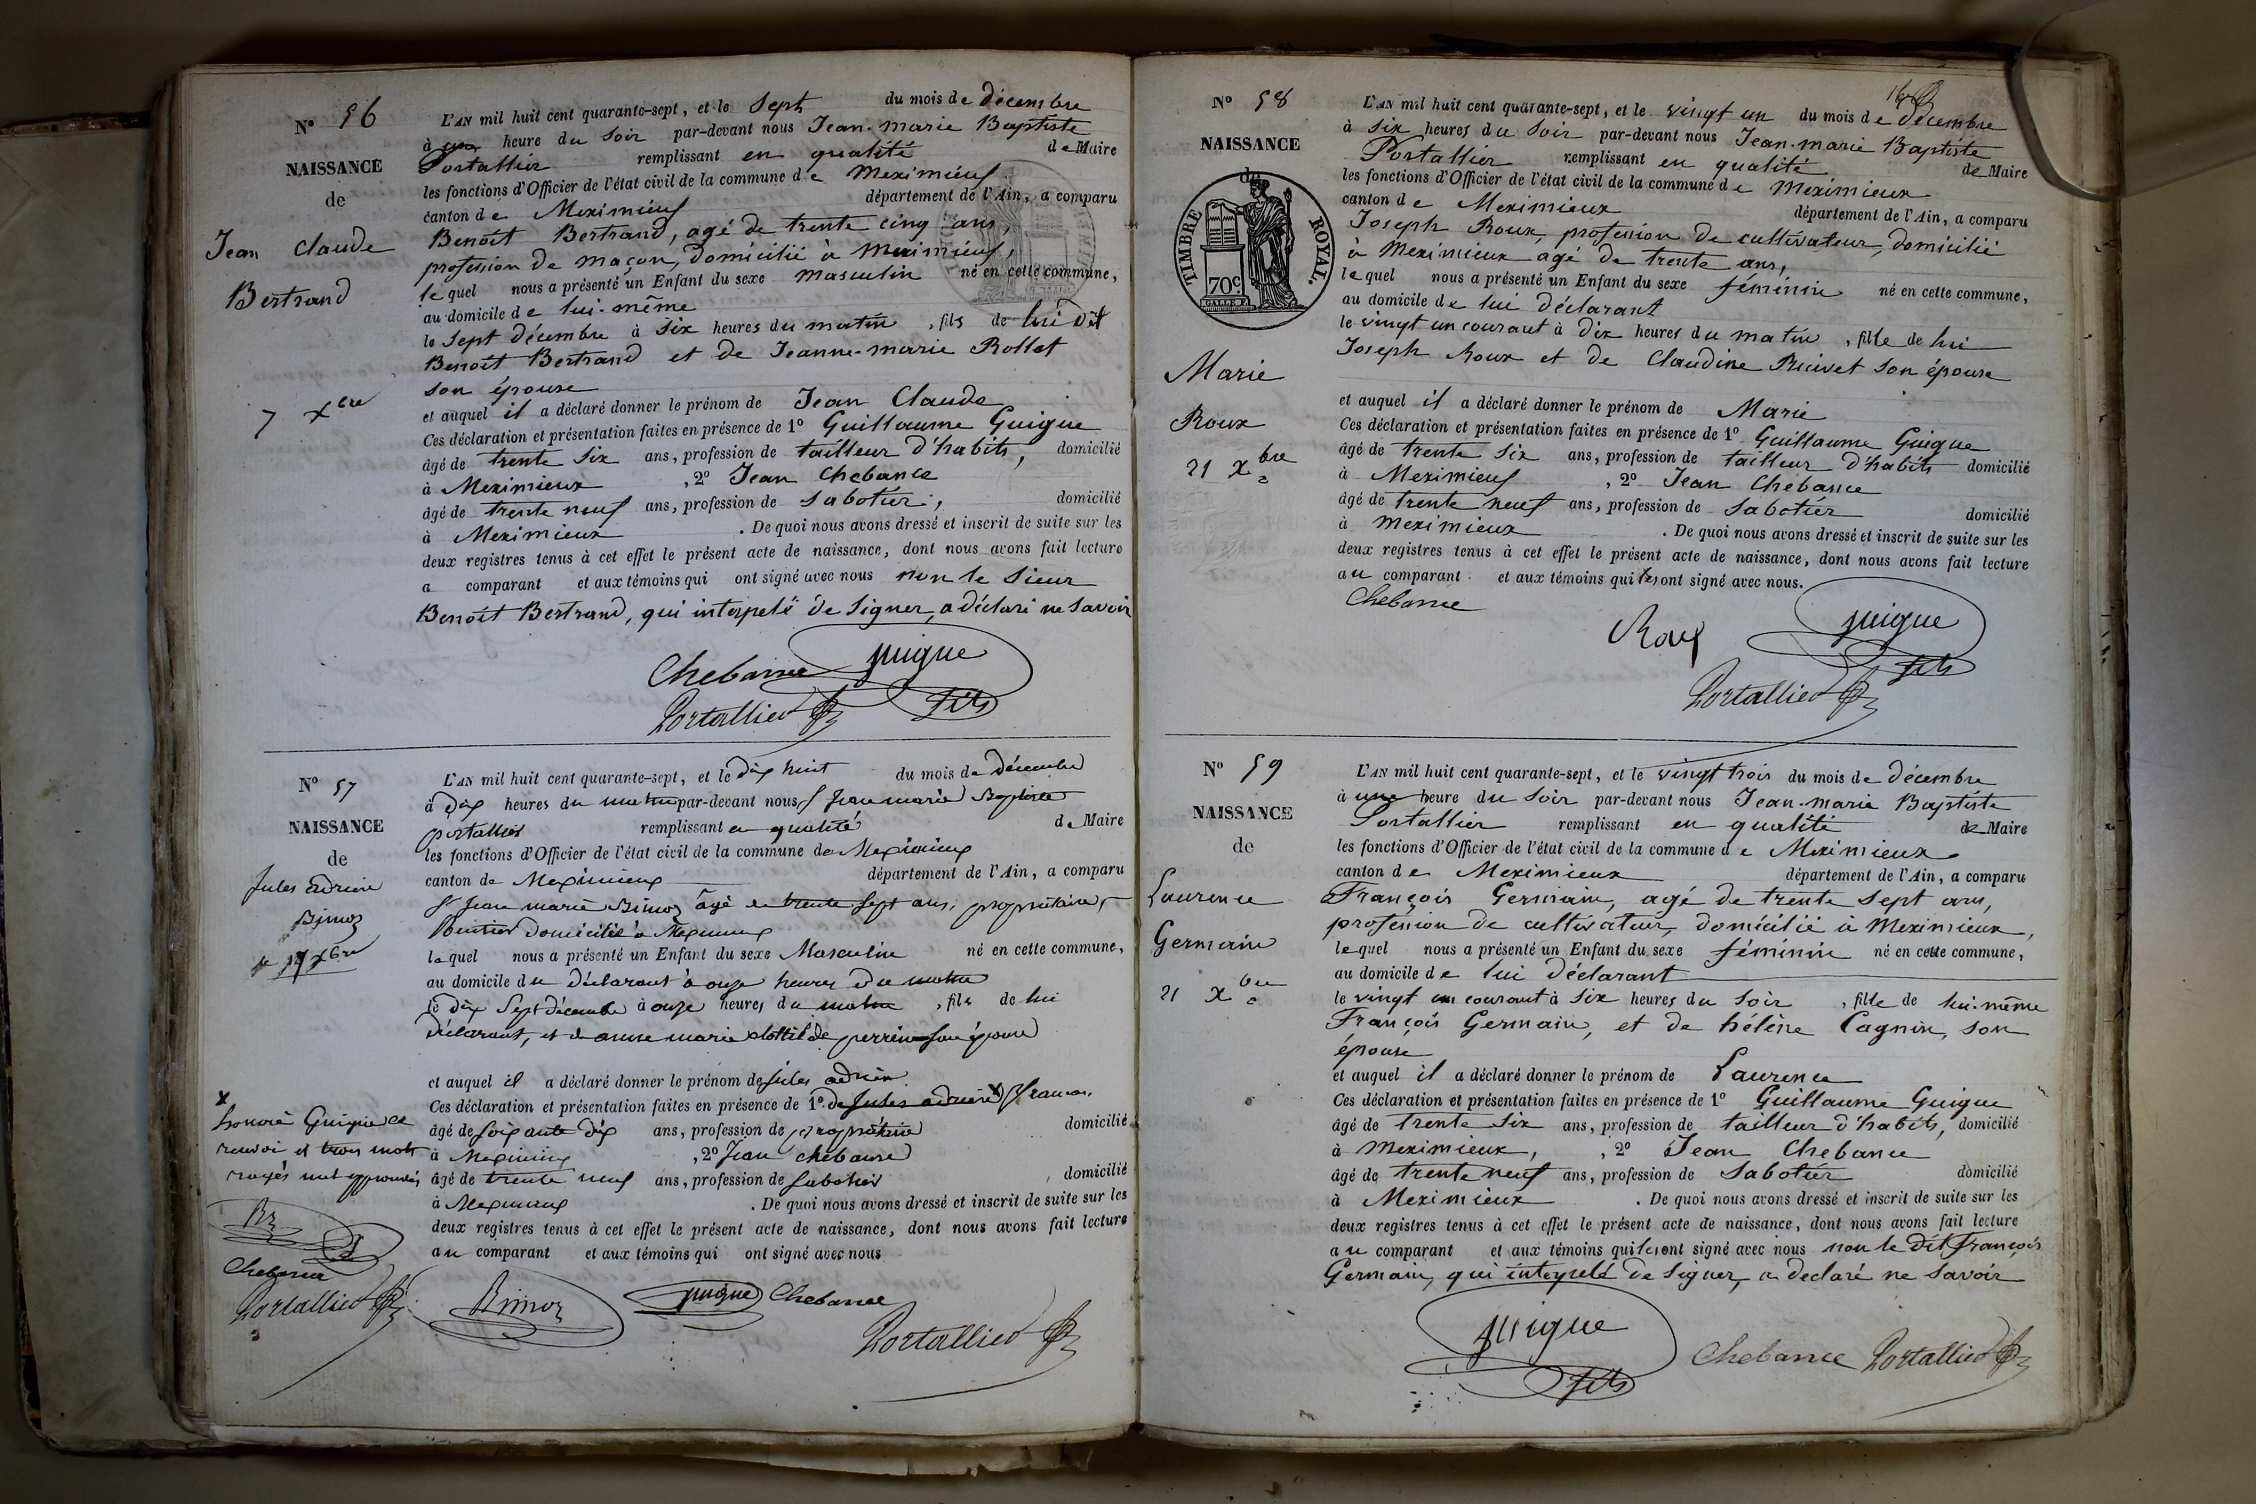 N° 56
NAISSANCE
de
Jean Claude
Bertrand
7 Xbre
L'AN mil huit cent quarante-sept, et le Sept du mois de décembre
à une heure du Soir par-devant nous Jean-marie Baptiste
Portallier remplissant en qualité de Maire
les fonctions d'Officier de l'état civil de la commune de Meximieux
canton de Meximieux département de l'Ain, a comparu
Benoît Bertrand, agé de trente cinq ans,
profession de maçon, domicilié à Meximieux,
lequel nous a présenté un Enfant du sexe masculin né en cette commune,
au domicile de lui-même
le Sept décembre à Six heures du matin, fils de lui dit
Benoît Bertrand et de Jeanne-marie Rollet
son épouse
et auquel il a déclaré donner le prénom de Jean Claude
Ces déclaration et présentation faites en présence de 1° Guillaume Guigue
âgé de trente Six ans, profession de tailleur d'habits, domicilié
à Meximieux, 2° Jean Chebance
âgé de trente neuf ans, profession de Sabotier, domicilié
à Meximieux. De quoi nous avons dressé et inscrit de suite sur les
deux registres tenus à cet effet le présent acte de naissance, dont nous avons fait lecture
a comparant et aux témoins qui ont signé avec nous non le Sieur
Benoît Bertrand, qui interpelé de Signer, a déclaré ne Savoir
Chebance Guigue
fils
Portallier
N° 57
NAISSANCE
de
Jules adrien
Bimoz
17 Xbre
L'AN mil huit cent quarante-sept, et le dix huit du mois de décembre
à dix heures du matin par-devant nous Jean marie Baptiste
Portallier remplissant en qualité de Maire
les fonctions d'Officier de l'état civil de la commune de Meximieux
canton de Meximieux département de l'Ain, a comparu
Sr Jean marie Bimoz âgé de trente sept ans, propriétaire,
domicilié à Meximieux
lequel nous a présenté un Enfant du sexe Masculin né en cette commune,
au domicile du déclarant à onze heures du matin
le dix Sept décembre à onze heures du matin, fils de lui
déclarant, et de anne marie clottilde perrin son épouse
et auquel il a déclaré donner le prénom de Jules adrien
Ces déclaration et présentation faites en présence de 1° de Jules adrien x
âgé de Soixante dix ans, profession de propriétaire domicilié
à Meximieux, 2° Jean chebance
âgé de trente neuf ans, profession de Sabotier, domicilié
à Meximieux. De quoi nous avons dressé et inscrit de suite sur les
deux registres tenus à cet effet le présent acte de naissance, dont nous avons fait lecture
au comparant et aux témoins qui ont signé avec nous
x
honoré Guigue ce
renvoi et trois mots
rayés nuls approuvés
Bz
Chebance
Portallier
Bimoz Guigue Chebance
Portallier
N° 58
NAISSANCE
de
TIMBRE ROYAL.
70c.
Marie
Roux
21 Xbre
L'AN mil huit cent quarante-sept, et le vingt un du mois de décembre
à Six heures du Soir par-devant nous Jean-marie Baptiste
Portallier remplissant en qualité de Maire
les fonctions d'Officier de l'état civil de la commune de Meximieux
canton de Meximieux département de l'Ain, a comparu
Joseph Roux, profession de cultivateur, domicilié
à Meximieux agé de trente ans,
lequel nous a présenté un Enfant du sexe féminin né en cette commune,
au domicile de lui déclarant
le vingt un courant à Dix heures du matin, fille de lui
Joseph Roux et de Claudine Ruivet Son épouse
et auquel il a déclaré donner le prénom de Marie
Ces déclaration et présentation faites en présence de 1° Guillaume Guigue
âgé de trente Six ans, profession de tailleur d'habits domicilié
à Meximieux, 2° Jean Chebance
âgé de trente neuf ans, profession de Sabotier domicilié
à Meximieux. De quoi nous avons dressé et inscrit de suite sur les
deux registres tenus à cet effet le présent acte de naissance, dont nous avons fait lecture
au comparant et aux témoins qui ont signé avec nous.
Chebance
Roux Guigue
fils
Portallier
N° 59
NAISSANCE
de
Laurence
Germain
21 Xbre
L'AN mil huit cent quarante-sept, et le vingt trois du mois de décembre
à une heure du Soir par-devant nous Jean-marie Baptiste
Portallier remplissant en qualité de Maire
les fonctions d'Officier de l'état civil de la commune de Meximieux
canton de Meximieux département de l'Ain, a comparu
François Germain, agé de trente Sept ans,
profession de cultivateur, domicilié à Meximieux,
lequel nous a présenté un Enfant du sexe féminin né en cette commune,
au domicile de lui déclarant
le vingt un courant à Six heures du Soir, fille de lui-même
François Germain, et de hélène Cagnin, son
épouse
et auquel il a déclaré donner le prénom de Laurence
Ces déclaration et présentation faites en présence de 1° Guillaume Guigue
âgé de trente Six ans, profession de tailleur d'habits, domicilié
à Meximieux, 2° Jean Chebance
âgé de trente neuf ans, profession de Sabotier domicilié
à Meximieux. De quoi nous avons dressé et inscrit de suite sur les
deux registres tenus à cet effet le présent acte de naissance, dont nous avons fait lecture
au comparant et aux témoins qui ont signé avec nous non le dit François
Germain, qui interpelé de Signer, a declaré ne Savoir
Guigue
fils
Chebance Portallier